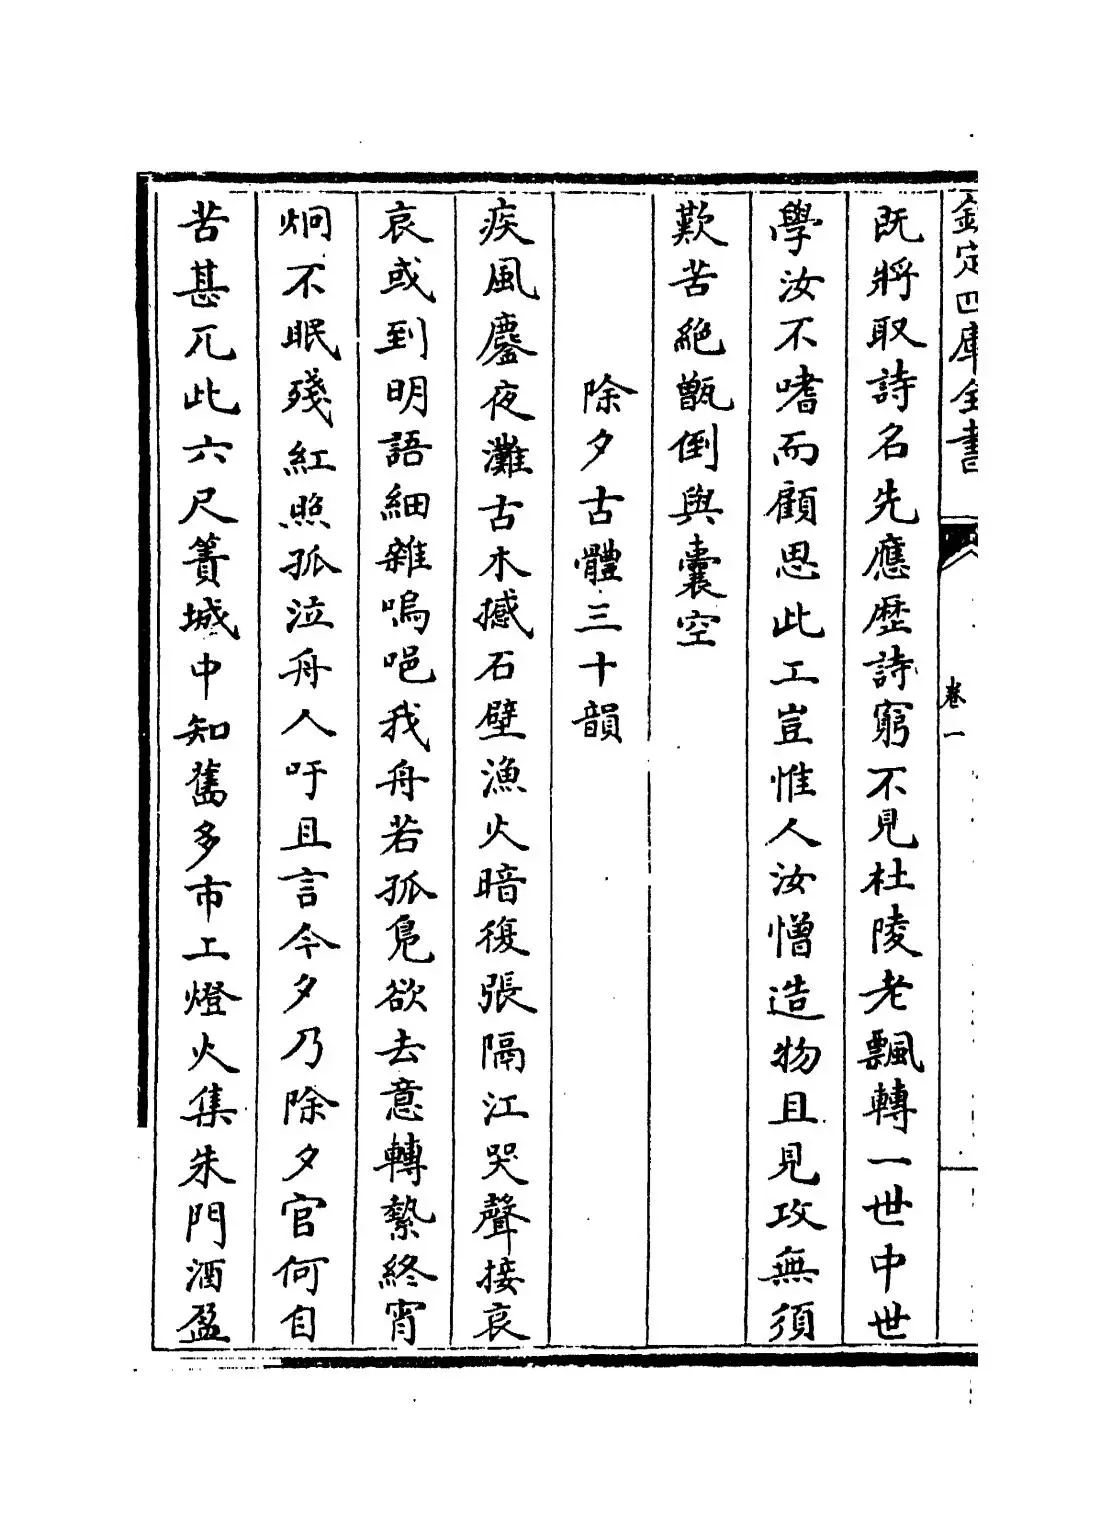 欽定四庫全書
卷一
既將取詩名先應歷詩窮不見杜陵老飄轉一世中世
學汝不嗜而顧思此工豈惟人汝憎造物且見攻無須
歎苦絶甑倒與囊空
除夕古體三十韻
疾風鏖夜灘古木撼石壁漁火暗復張隔江哭聲接哀
哀或到明語細雜嗚唈我舟若孤鳬欲去意轉縶終宵
炯不眠殘紅照孤泣舟人吁且言今夕乃除夕官何自
苦甚兀此六尺簀城中知舊多市工燈火集朱門酒盈